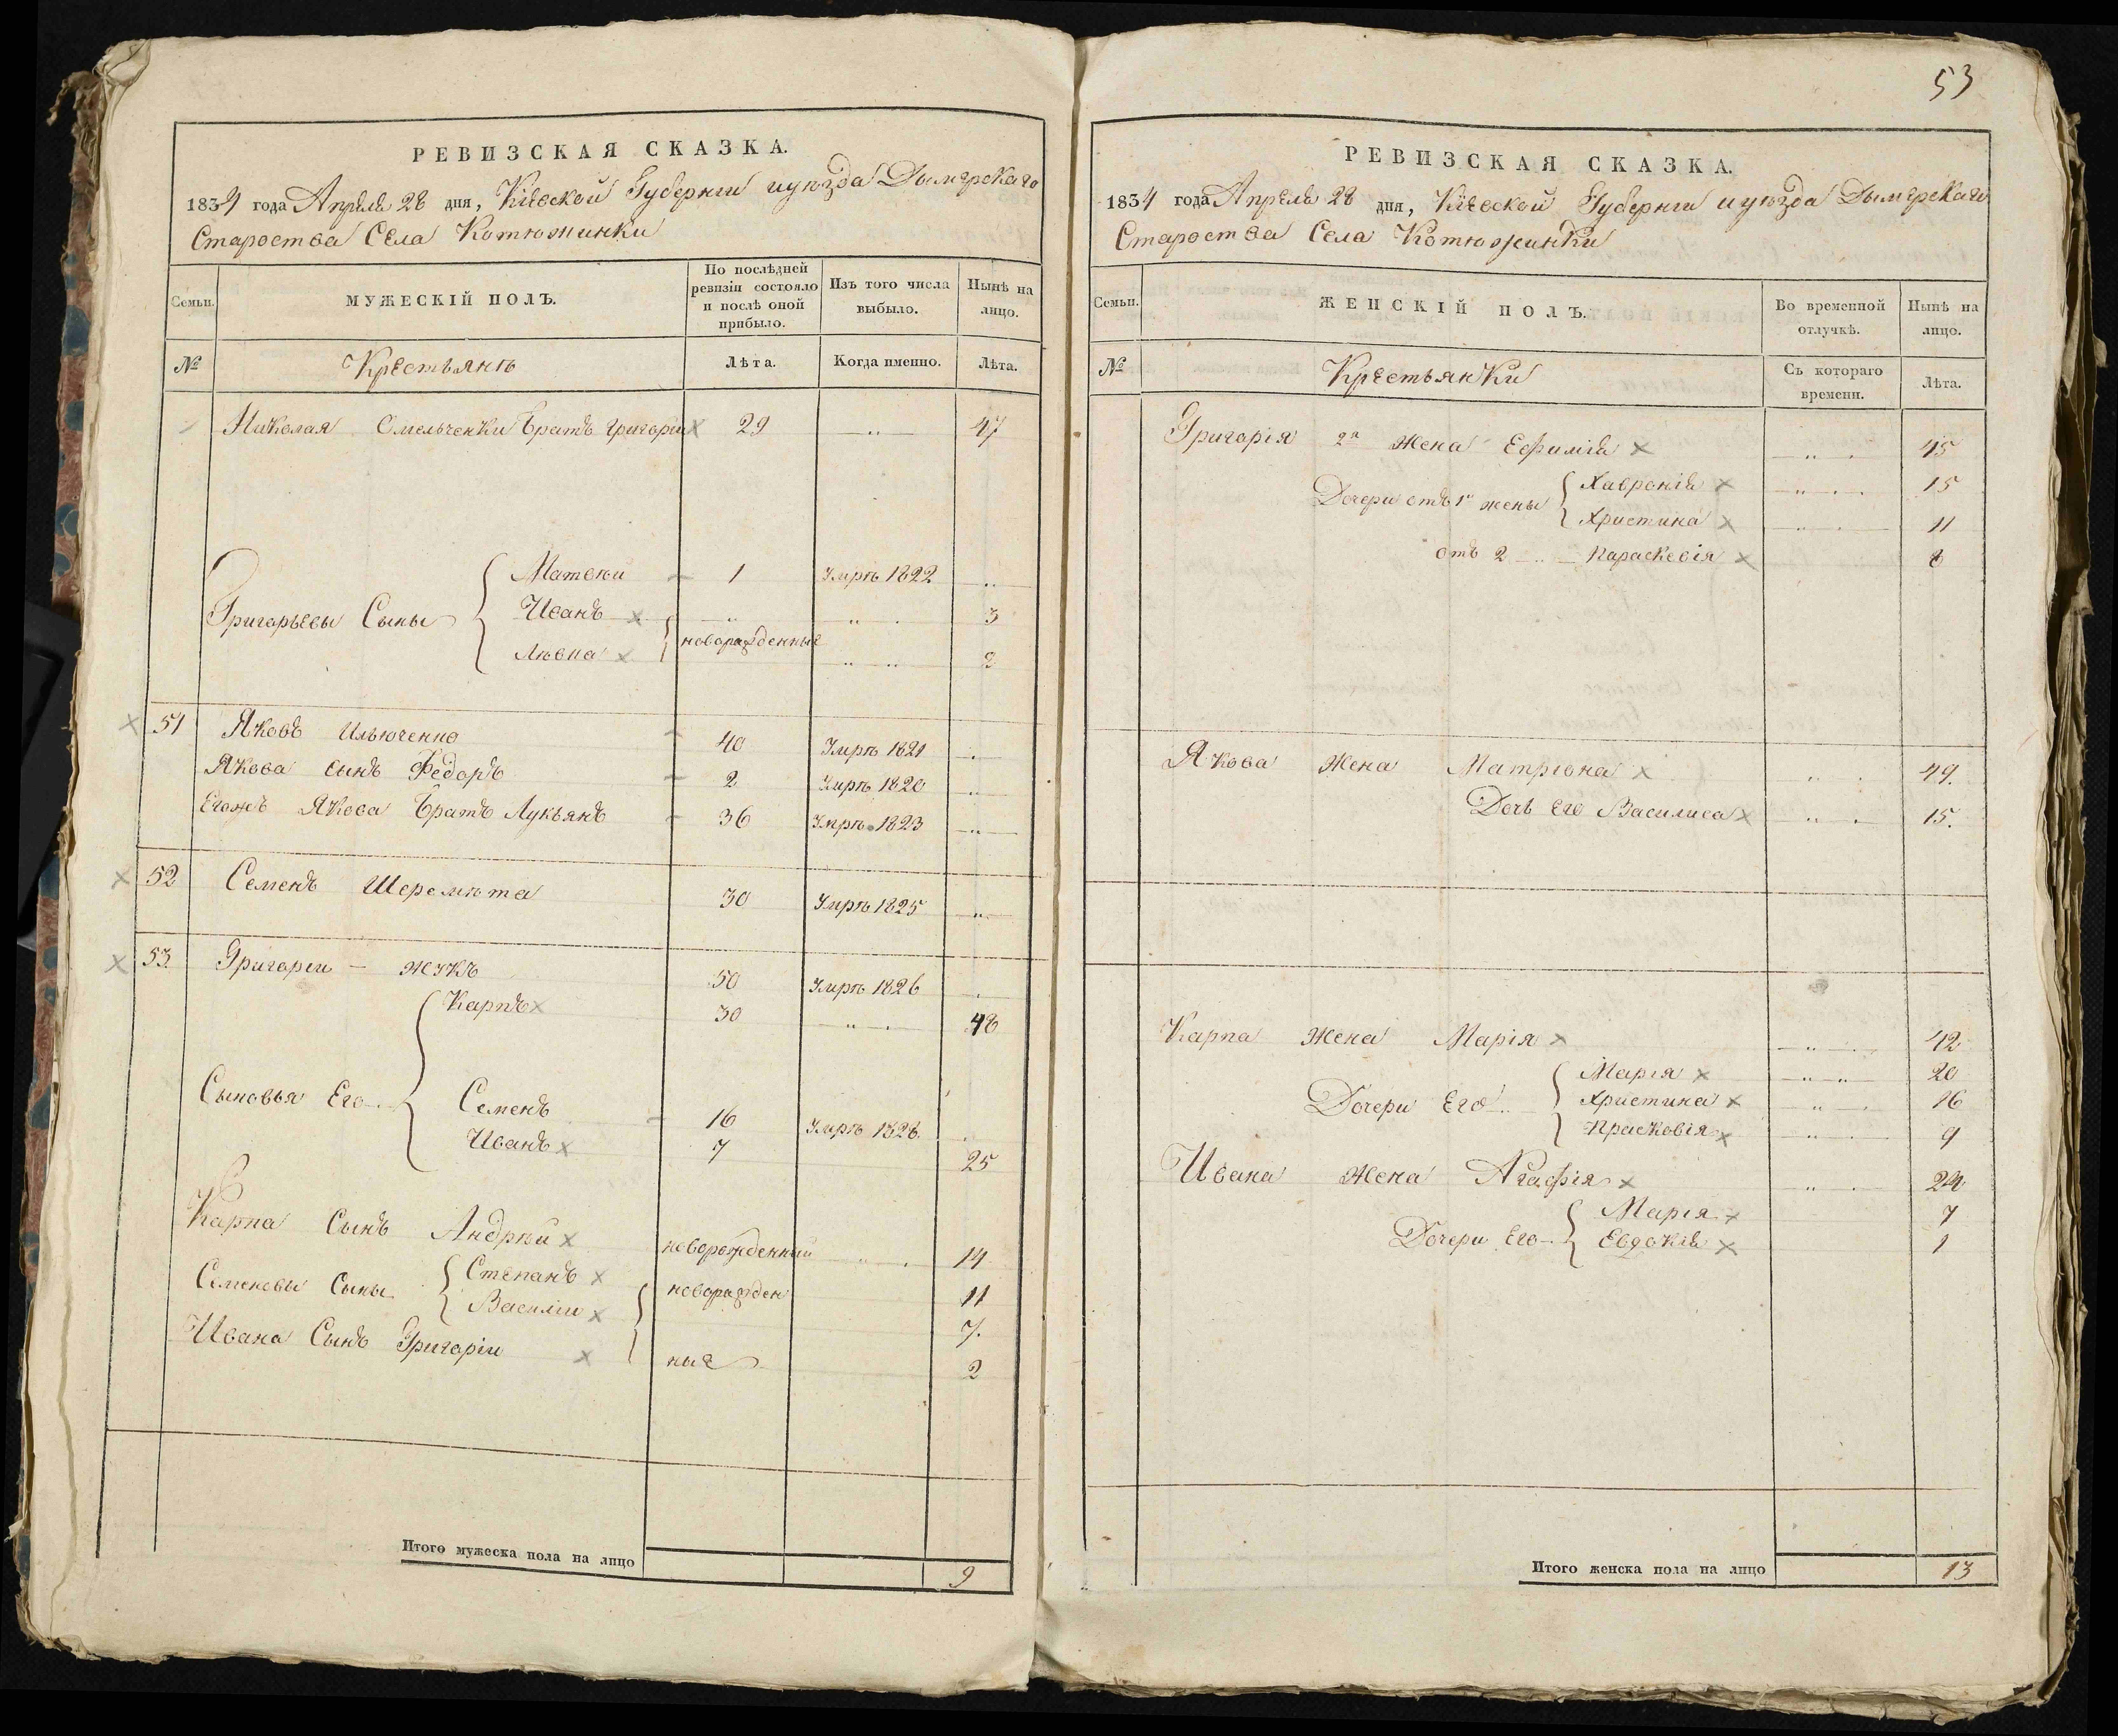 РЕВИЗСКАЯ СКАЗКА.
1834 года Апреля 28 дня, Кіевской Губерніи и уѣзда Дымерскаго
Староства Села Котюжинки
Семьи.
МУЖЕСКІЙ ПОЛЪ.
По послѣдней ревизіи состояло и послѣ оной прибыло.
Изъ того числа выбыло.
Нынѣ на лицо.
№
Крестьянъ
Лѣта.
Когда именно.
Лѣта.
Николая Омельченки братъ Григорій 29 47
Матвѣй 1 Умрѣ 1822
Григорьевы Сыны Иванъ 3
новорожденные
2
51 Яковъ Ильюченко 40 Умрѣ 1821
Якова сынъ Федоръ 2 Умрѣ 1820
Егожъ Якова братъ Лукьянъ 36 Умрѣ 1823
52 Семенъ Шеремѣта 30 Умрѣ 1825
53 Григорей Жукъ 50 Умрѣ 1826
Карпъ 30 48
Сыновья Его Семенъ 16 Умрѣ 1828
Иванъ 7 25
Карпа Сынъ Андрѣй новорожденный 14
Семеновы Сыны Степанъ новорожден 11
Василій 7.
Ивана Сынъ Григорій ные 2
Итого мужеска пола на лицо 9
53
РЕВИЗСКАЯ СКАЗКА.
1834 года Апреля 28 дня, Кіевской Губерніи и уѣзда Дымерскаго
Староства Села Котюжинки
Семьи.
ЖЕНСКІЙ ПОЛЪ.
Во временной отлучкѣ.
Нынѣ на лицо.
№
Крестьянки
Съ котораго времени.
Лѣта.
Григорія 2я Жена Ефимія 45
Дочери отъ 1й жены Хавронія 15
Христина 11
отъ 2 Параскевія 8
Якова Жена Матріона 49.
Дочь его Василиса 15.
Карпа Жена Марія 42
Марія 20
Дочери Его Христина 16
Прасковія 9
Ивана Жена Агафія 24
Марія 7
Дочери Его Евдокія 1
Итого женска пола на лицо 13